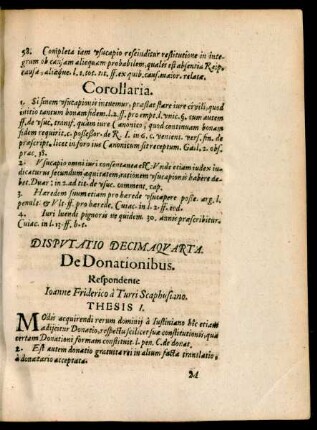 58. Completa iam vsucapio rescinditur restitutione in inte-
grum ob causam aliquam probabilem, qualis est absentia Reip.
causa, aliæque. l. 1. tot. tit. ff. ex quib. caus. maior. relatæ.
Corollaria.
1. Si finem vsucapionis intuemur, præstat stare iure civili, quod
initio tantum bonam fidem. l. 2. ff. pro empt. l. vnic. §. cum autem
ff. de vsuc. transf. quàm iure Canonico, quod continuam bonam
fidem requirit. c. possessor. de R. I. in 6. c. venient. vers. fin. de
præscript. licet in foro ius Canonicum sit receptum. Gail. 2. obs.
prac. 18.
2. Vsucapio omni iuri consentanea est. Vnde etiam iudex in-
dicaturus secundum æquitatem, rationem vsucapionis habere de-
bet. Duar: in 2. ad tit. de vsuc. comment. cap.
Haredem suum etiam pro harede vsucapere posse. arg. l.
penult. & Vlt. ff. pro harede. Cuiac. in l. 2. ff. eod.
4. Iuri luendi pignoris ne quidem 30. annis præscribitur.
Cuiac. in l. 13. ff. h. t.
DISPVTATIO DECIMAQVARTA.
De Donationibus.
Respondente
Ioanne Friderico à Turri Scaphosiano.
THESIS I.
Modis acquirendi rerum dominij à Iustiniano hîc etiam
adijcitur Donatio, respectu scilicet suæ constitutionis, qua
certam Donationi formam constituit. l. pen. C. de donat.
2. Est autem donatio gratuita rei in alium facta translatio,
à donatario acceptata.
M